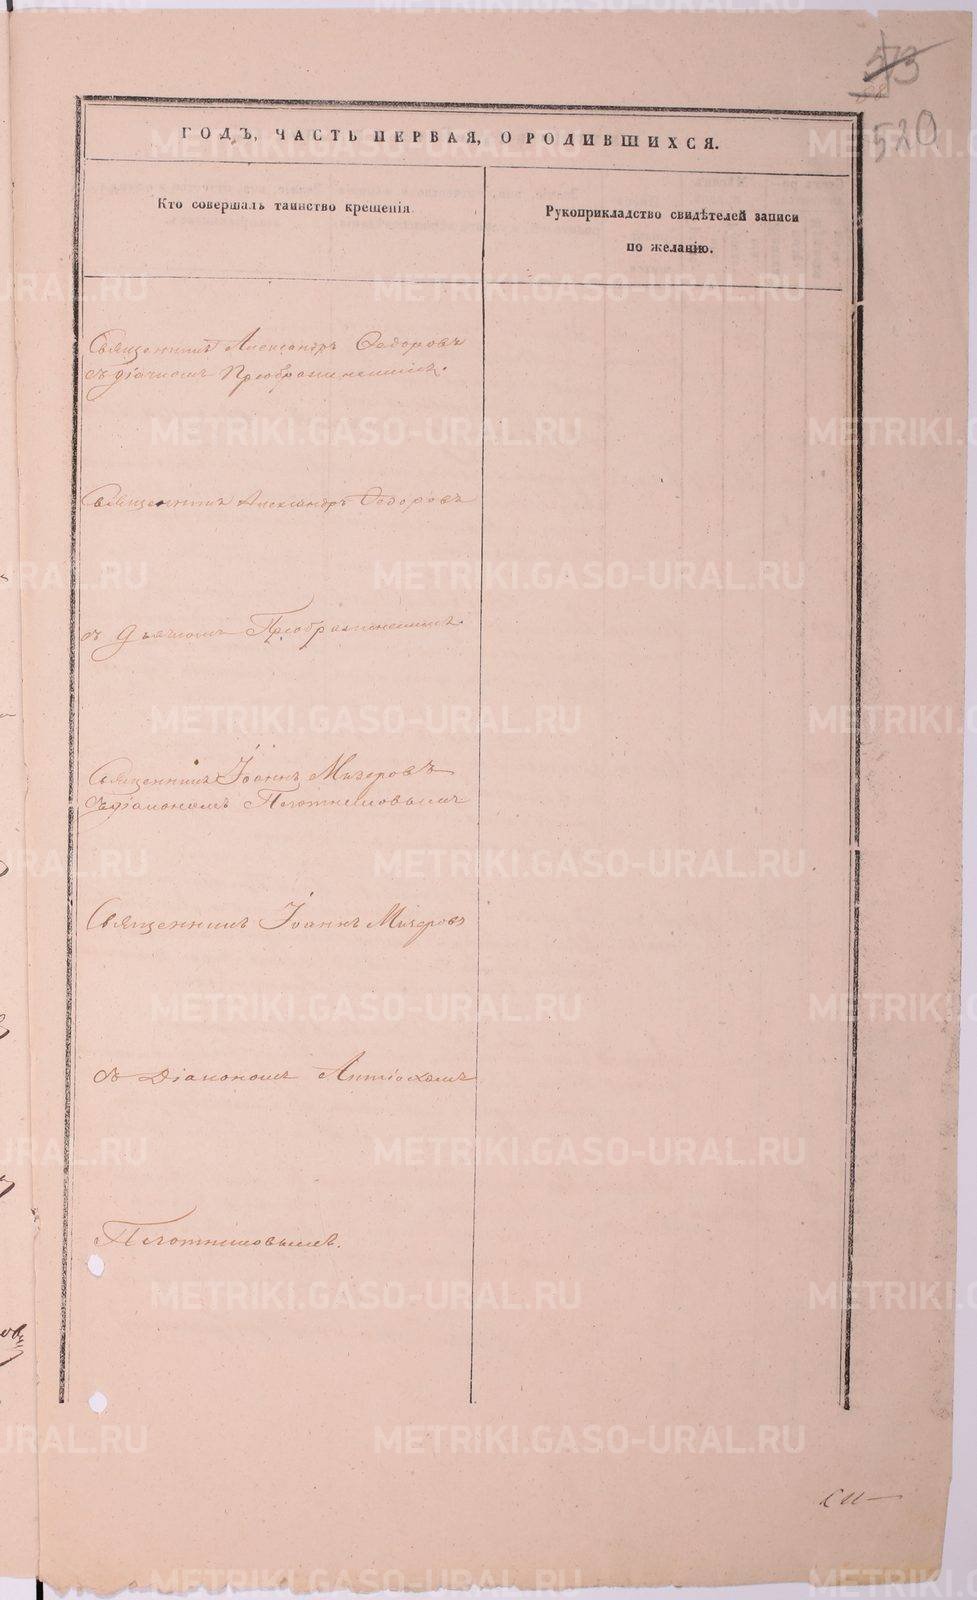 573
520
ГОДЪ, ЧАСТЬ ПЕРВАЯ, О РОДИВШИХСЯ.
Кто совершалъ таинство крещенія.
Рукоприкладство свидѣтелей записи
по желанію.
Священникъ Александръ Ѳедоровъ
съ діачкомъ Преображенскимъ.
Священникъ Александръ Ѳедоровъ
съ дьячкомъ Преображенскимъ.
Священникъ Іоаннъ Мизеровъ
съ діакономъ Плотниковымъ
Священникъ Іоаннъ Мизеровъ
съ Діакономъ Антіохомъ
Плотниковымъ.
METRIKI.GASO-URAL.RU